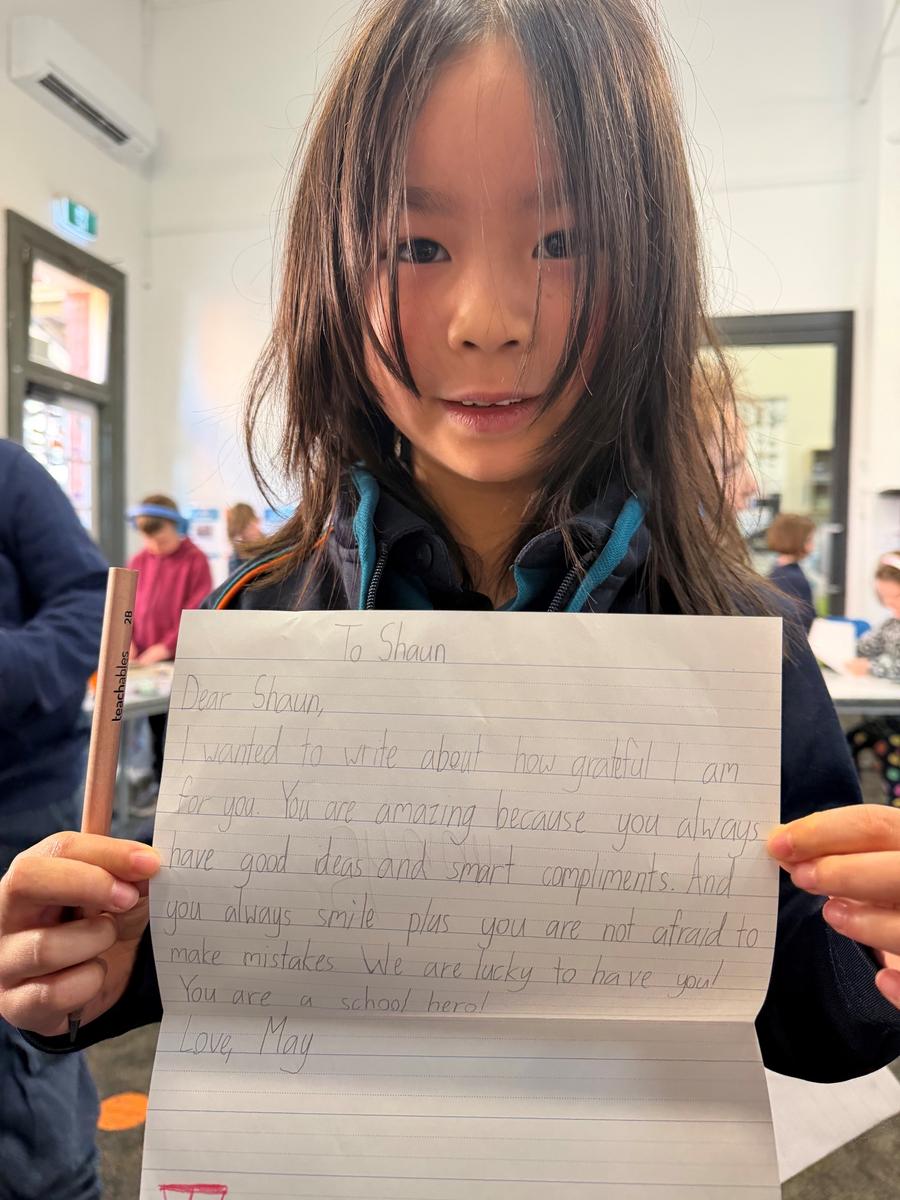 To Shaun
Dear Shaun,
I wanted to write about how grateful I am
for you. You are amazing because you always
have good ideas and smart compliments. And
you always smile plus you are not afraid to
make mistakes. We are lucky to have you!
You are a school hero!
Love, May
teachables 2B